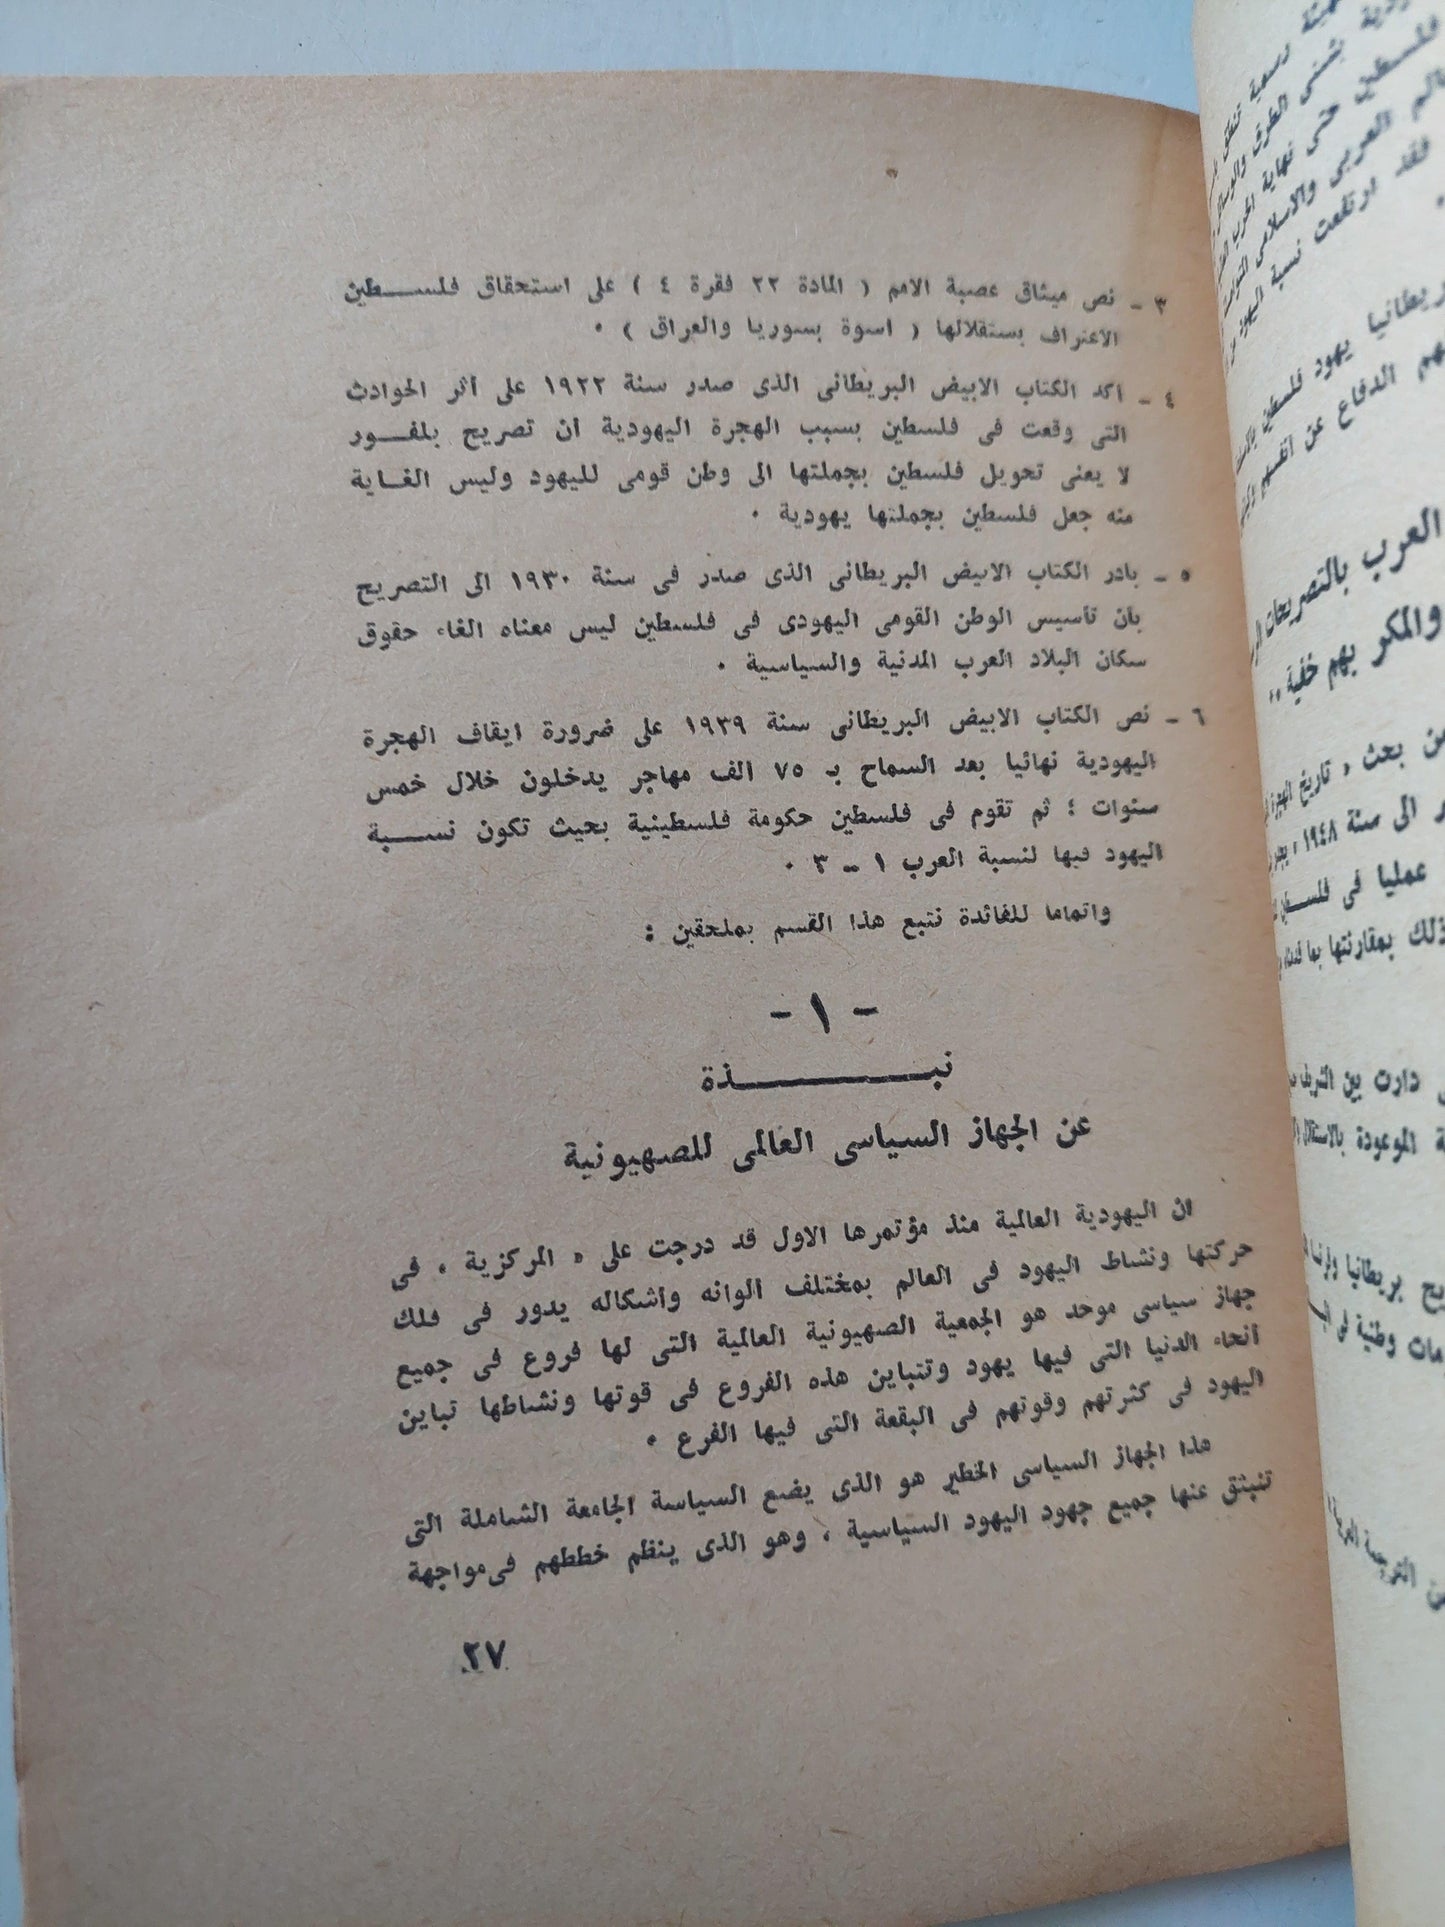 ٣ - نص ميثاق عصبة الامم ( المادة ٢٢ فقرة ٤ ) على استحقاق فلسطين
الاعتراف بستقلالها ( اسوة بسوريا والعراق ) ٠
٤ - اكد الكتاب الابيض البريطانى الذى صدر سنة ١٩٢٢ على أثر الحوادث
التى وقعت فى فلسطين بسبب الهجرة اليهودية ان تصريح بلفور
لا يعنى تحويل فلسطين بجملتها الى وطن قومى لليهود وليس الغاية
منه جعل فلسطين بجملتها يهودية ٠
٥ - بادر الكتاب الابيض البريطانى الذى صدر فى سنة ١٩٣٠ الى التصريح
بان تأسيس الوطن القومى اليهودى فى فلسطين ليس معناه الغاء حقوق
سكان البلاد العرب المدنية والسياسية ٠
٦ - نص الكتاب الابيض البريطانى سنة ١٩٣٩ على ضرورة ايقاف الهجرة
اليهودية نهائيا بعد السماح بـ ٧٥ الف مهاجر يدخلون خلال خمس
سنوات ؛ ثم تقوم فى فلسطين حكومة فلسطينية بحيث تكون نسبة
اليهود فيها لنسبة العرب ١ - ٣ ٠
واتماما للفائدة نتبع هذا القسم بملحقين :
- ١ -
نبذة
عن الجهاز السياسى العالمى للصهيونية
ان اليهودية العالمية منذ مؤتمرها الاول قد درجت على « المركزية » فى
حركتها ونشاط اليهود فى العالم بمختلف الوانه واشكاله يدور فى فلك
جهاز سياسى موحد هو الجمعية الصهيونية العالمية التى لها فروع فى جميع
أنحاء الدنيا التى فيها يهود وتتباين هذه الفروع فى قوتها ونشاطها تباين
اليهود فى كثرتهم وقوتهم فى البقعة التى فيها الفرع ٠
هذا الجهاز السياسى الخطير هو الذى يضع السياسة الجامعة الشاملة التى
تنبثق عنها جميع جهود اليهود السياسية ، وهو الذى ينظم خططهم فى مواجهة
٢٧
فقد ارتفعت نسبة اليهود
يهود فلسطين
الدفاع عن انفسهم
العرب بالتصريحات
والمكر بهم خفية ٠٠
بحث « تاريخ الهجرة
الى سنة ١٩٤٨ »
عمليا فى
بمقارنتها بما
دارت بين الشريف
الموعودة بالاستقلال
بريطانيا
وطنية فى
الترجمة